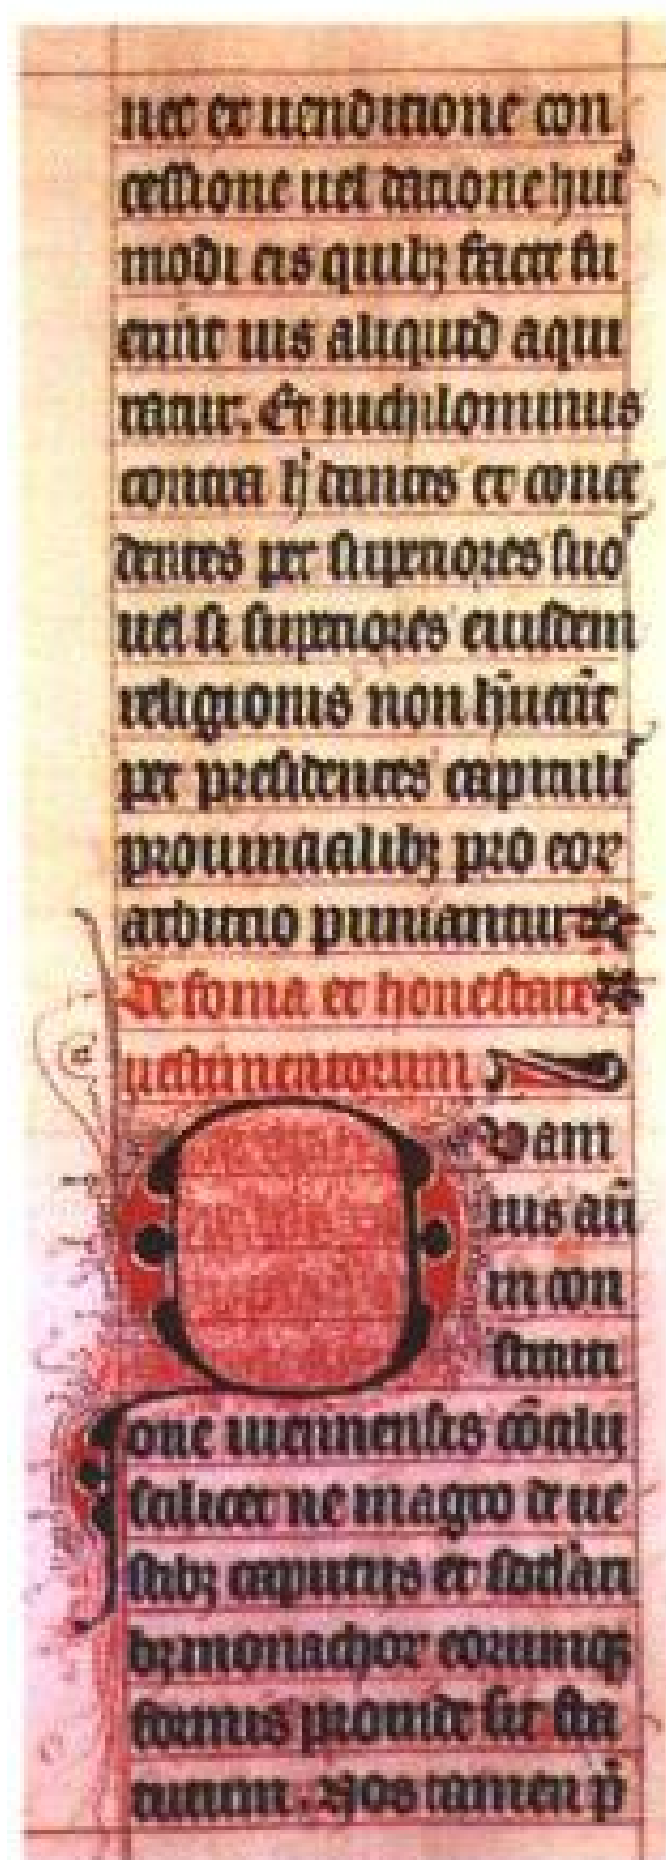 nec ex uenditione con
cessione uel datione hui⁹
modi eis quibꝫ facte fu
erint ius aliquid aqui
ratur. Et nichilominus
contra hͥ dantes et conce
dentes per superiores suo
uel si superiores eiusdem
religionis non hūerīt
per presidentes capituli
prouincialibꝫ pro eoꝝ
arbitrio puniantur
De forma et honestate
uestimentorum
Quam
uis aūt
in con
stituti
one uiennensis cōcilij
scilicet ne in agro de ue
stibꝫ caputijs et
bꝫ monachoꝝ eorumqꝫ
formis prouide sit sta
tutum. Nos tamen p̄